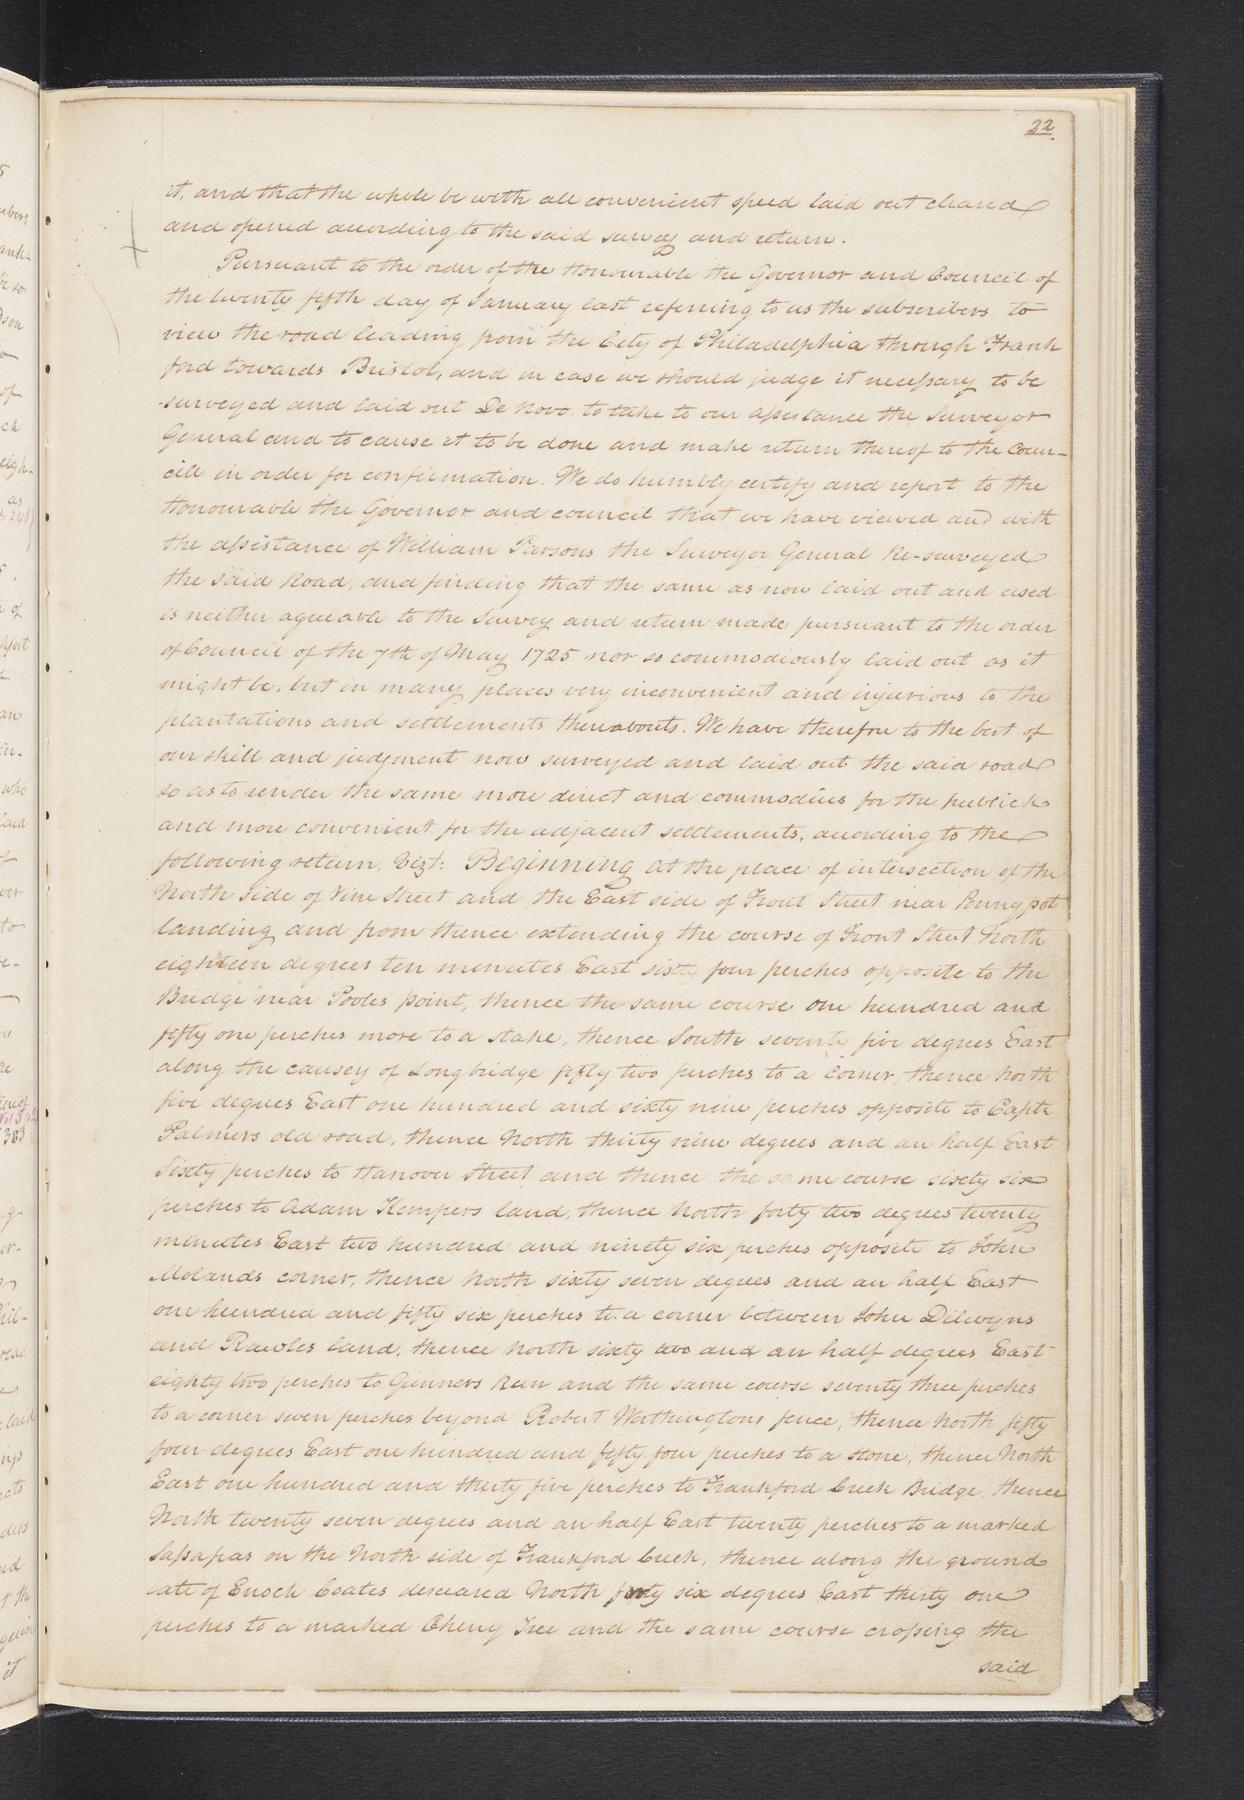 22.
it, and that the whole be with all convenient speed laid out cleared
and opened according to the said survey and return.
Pursuant to the order of the Honourable the Governor and Council of
the twenty fifth day of January last referring to us the subscribers to
view the road leading from the City of Philadelphia through Frank
ford towards Bristol, and in case we should judge it necessary to be
surveyed and laid out De Novo, to take to our assistance the Surveyor
General and to cause it to be done and make return thereof to the Coun-
cill in order for confirmation. We do humbly certify and report to the
Honourable the Governor and council that we have viewed and with
the assistance of William Parsons the Surveyor General Re-surveyed
the said Road, and finding that the same as now laid out and used
is neither agreeable to the Survey and return made pursuant to the order
of Council of the 7th of May 1725 nor so commodiously laid out as it
might be, but in many places very inconvenient and injurious to the
plantations and settlements thereabouts. We have therefore to the best of
our skill and judgment now surveyed and laid out the said road
so as to render the same more direct and commodius for the publick
and more convenient for the adjacent settlements, according to the
following return, Vizt: Beginning at the place of intersection of the
North side of Vine Street and the East side of Front Street near Pennypot
landing and from thence extending the course of Front Street North
eighteen degrees ten minutes East sixty four perches opposite to the
Bridge near Pooles point, thence the same course one hundred and
fifty one perches more to a stake, thence South seventy five degrees East
along the causey of Longbridge fifty two perches to a Corner, thence North
five degrees East one hundred and sixty nine perches opposite to Captn
Palmers old road, thence North thirty nine degrees and an half East
Sixty perches to Hanover Street and thence the same course sixty six
perches to Adam Kempers land, thence North forty two degrees twenty
minutes East two hundred and ninety six perches opposite to John
Molands corner, thence North sixty seven degees and an half East
one hundred and fifty six perches to a corner between John Dilwyns
and Rawles land, thence North sixty two and an half degrees East
eighty two perches to Gunners Run and the same course seventy three perches
to a corner seven perches beyond Robert Worthingtons fence, thence North fifty
four degrees East one hundred and fifty four perches to a stone, thence North
East one hundred and thirty five perches to Frankford Creek Bridge, thence
North twenty seven degrees and an half East twenty perches to a marked
Sassafras on the North side of Frankford Creek, thence along the ground
late of Enoch Coates deseared North forty six degrees East thirty one
perches to a marked Cherry Tree and the same course crossing the
said